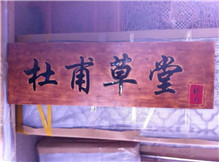 杜甫草堂